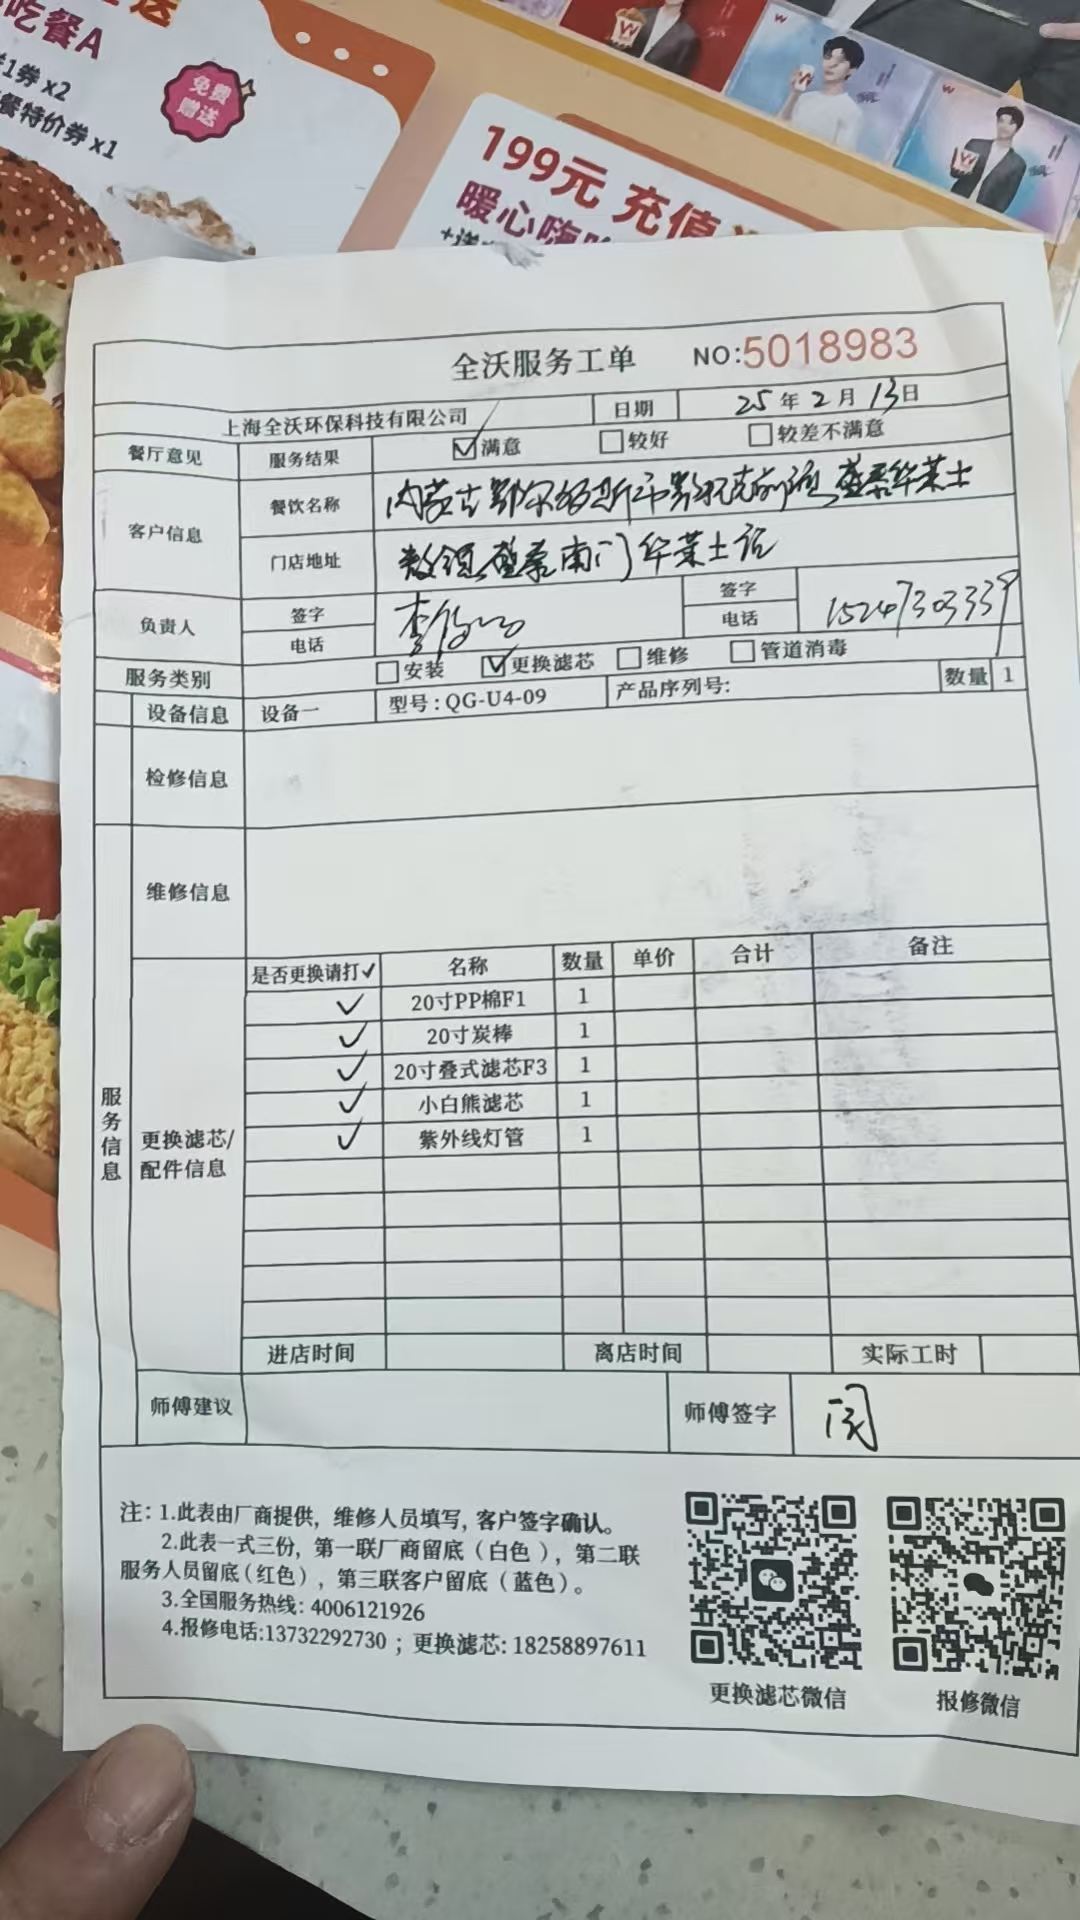 吃餐A
1券 x2
餐特价券 x1
免费
赠送
199元 充值
暖心嗨
全沃服务工单 NO:5018983
上海全沃环保科技有限公司 日期 25年2月13日
餐厅意见 服务结果 ☑满意 □较好 □较差不满意
客户信息 餐饮名称 内蒙古鄂尔多斯市鄂托克前旗 盛泰华莱士
门店地址 敖镇盛泰南门华莱士店
负责人 签字 李 签字
电话 电话 15247303339
服务类别 □安装 ☑更换滤芯 □维修 □管道消毒
设备信息 设备一 型号：QG-U4-09 产品序列号: 数量 1
检修信息
维修信息
服务信息
更换滤芯/
配件信息
是否更换请打✓ 名称 数量 单价 合计 备注
✓ 20寸PP棉F1 1
✓ 20寸炭棒 1
✓ 20寸叠式滤芯F3 1
✓ 小白熊滤芯 1
✓ 紫外线灯管 1
进店时间 离店时间 实际工时
师傅建议 师傅签字
注：1.此表由厂商提供，维修人员填写，客户签字确认。
2.此表一式三份，第一联厂商留底（白色），第二联
服务人员留底（红色），第三联客户留底（蓝色）。
3.全国服务热线：4006121926
4.报修电话:13732292730；更换滤芯: 18258897611
更换滤芯微信 报修微信